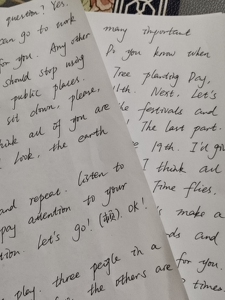 question? Yes.
can go to work
for you. Any other
should stop using
public places.
set down, please,
think all if you are
Look, the earth
and repeat. Listen to
pay attention to your
tion. Let's go! OK!
play. three people in a
the others are
many important
Do you know when
Tree planting Day,
Next. Let's
the festivals and
! The last part.
19th. I'd
I think all
Time flies.
make a
and
for you.
times